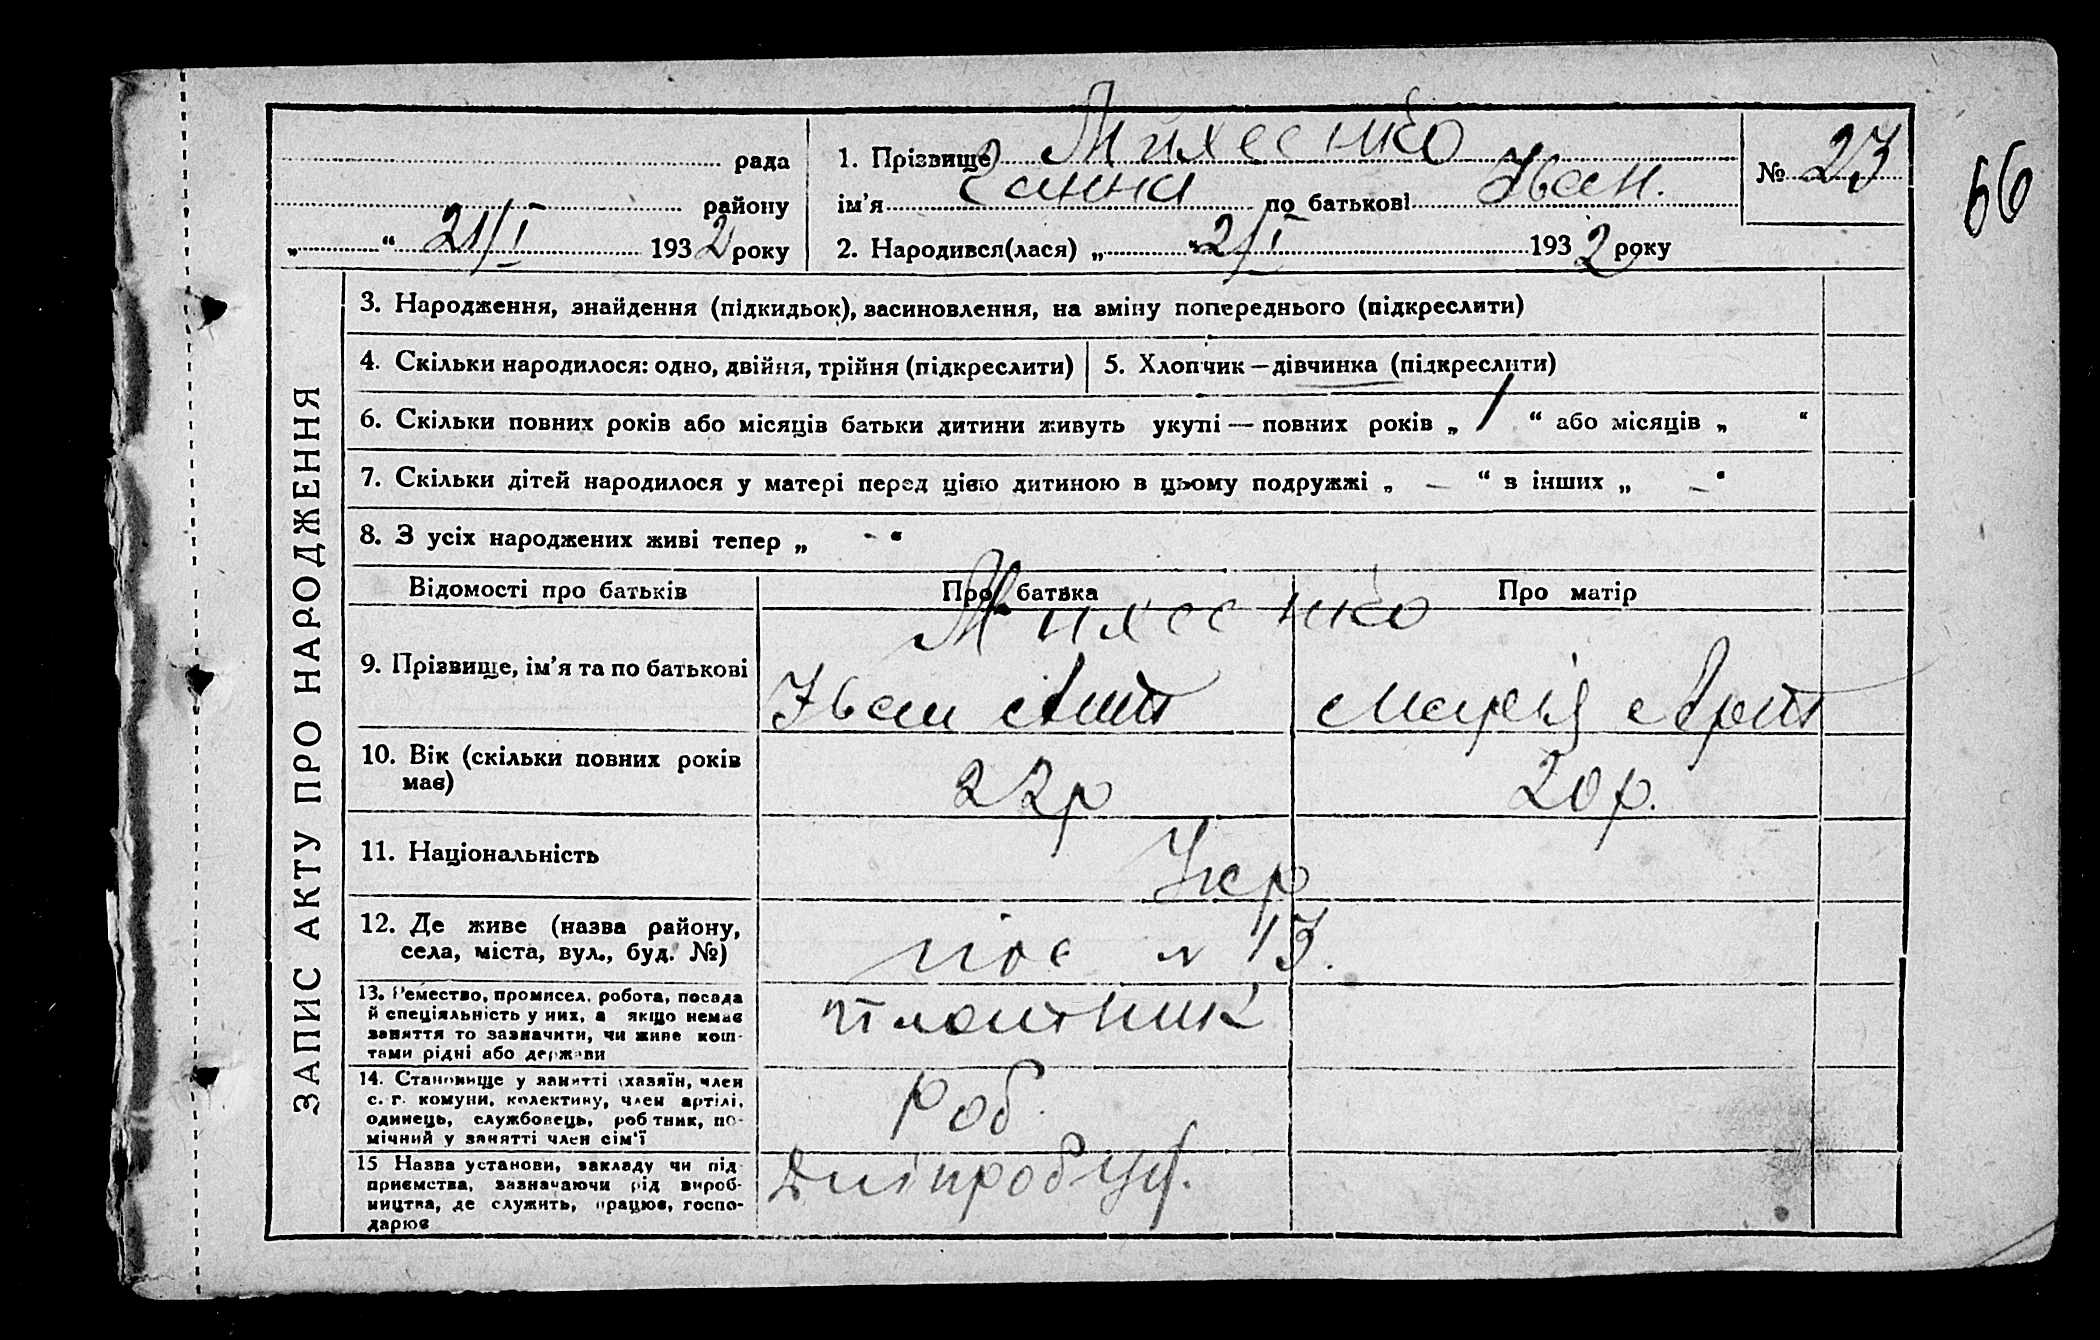 рада
району
„ “ 21/I 1932 року
1. Прізвище Михеєнко
ім’я Ганна по батькові Іван.
2. Народився(лася) „ “ 2/I 1932 року
№ 23
66
ЗАПИС АКТУ ПРО НАРОДЖЕННЯ
3. Народження, знайдення (підкидьок), засиновлення, на зміну попереднього (підкреслити)
4. Скільки народилося: одно, двійня, трійня (підкреслити)
5. Хлопчик — дівчинка (підкреслити)
6. Скільки повних років або місяців батьки дитини живуть укупі — повних років „ 1 “ або місяців „ “
7. Скільки дітей народилося у матері перед цією дитиною в цьому подружжі „ — “ в інших „ — “
8. З усіх народжених живі тепер „ - “
Відомості про батьків
Про батька
Про матір
9. Прізвище, ім’я та по батькові
Михеєнко
Іван Ант
Марія Арт
10. Вік (скільки повних років
має)
22р
20р.
11. Національність
Укр
12. Де живе (назва району,
села, міста, вул., буд. №)
пос N 13.
13. Ремество, промисел, робота, посада
й спеціяльність у них, а якщо немає
заняття то зазначити, чи живе кош-
тами рідні або держави
плотник
14. Становище у занятті (хазяїн, член
с. г. комуни, колективу, член артілі,
одинець, службовець, робітник, по-
мічний у занятті член сім’ї
Роб.
15 Назва установи, закладу чи під
приємства, зазначаючи рід вироб-
ництва, де служить, працює, госпо-
дарює
Дніпробуд.